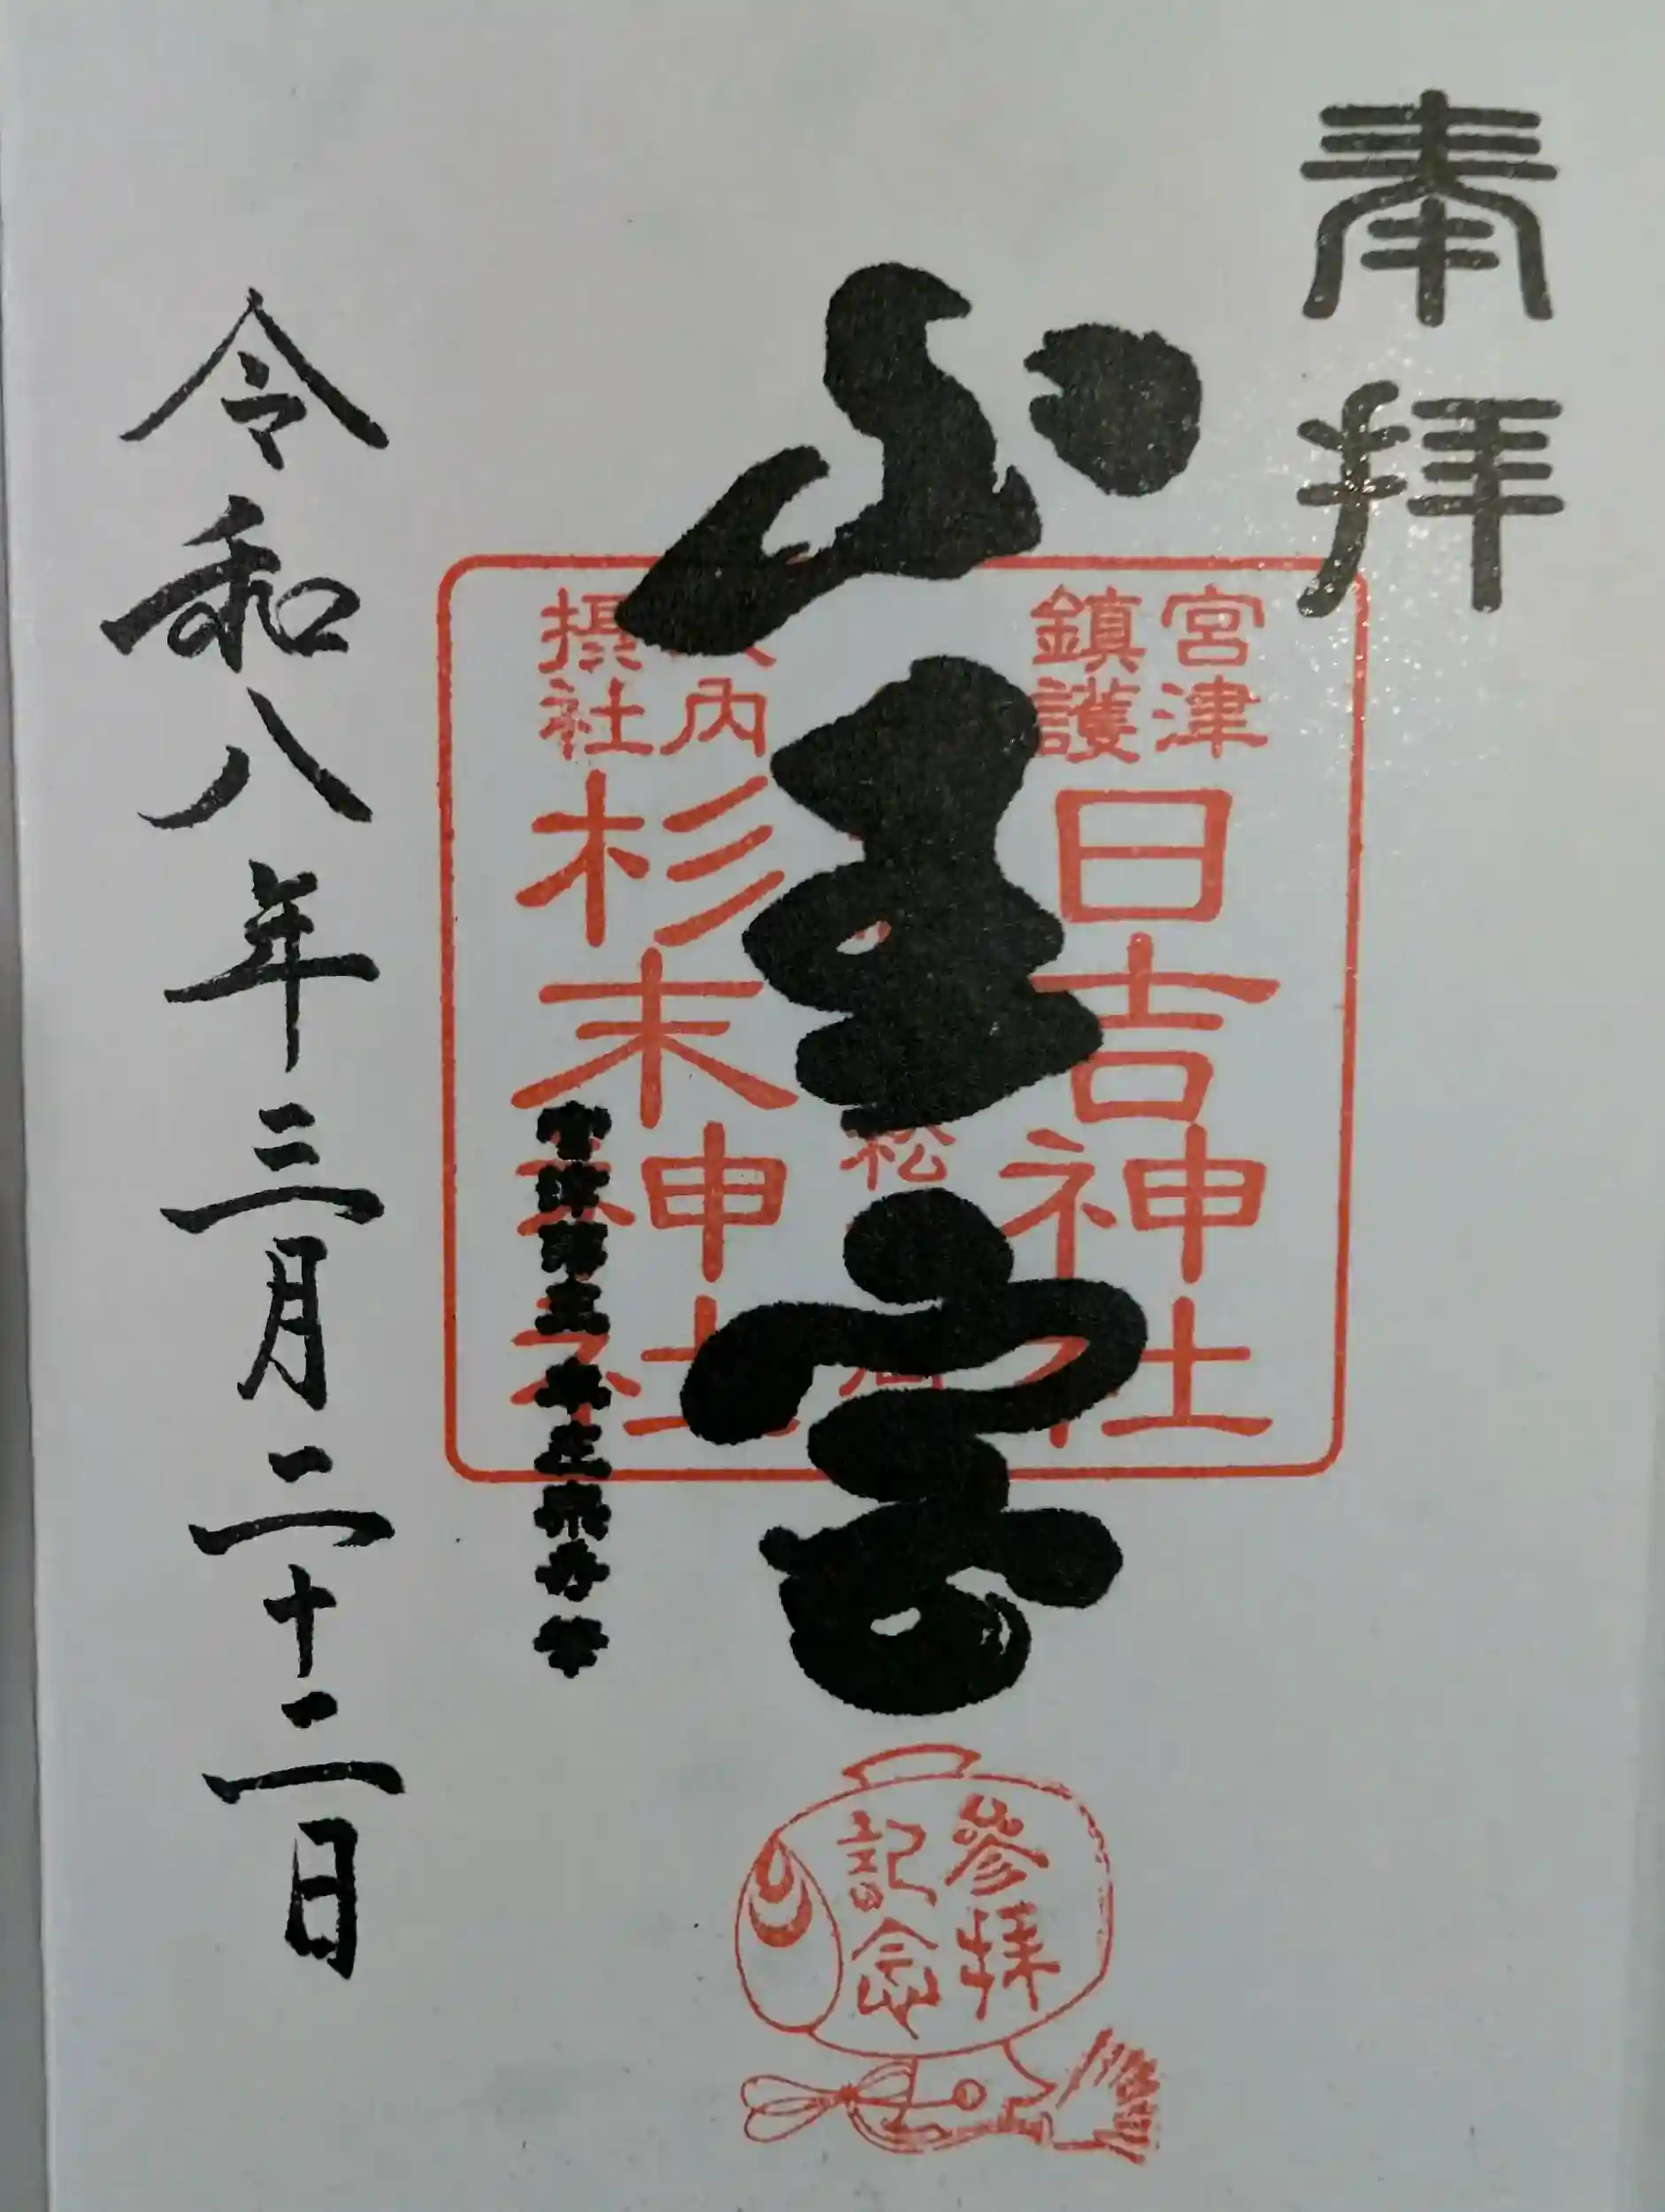 奉拝
山王宮
宮津
鎮護
日吉神社
内
摂社
杉末神社
参拝
記念
令和八年三月二十二日